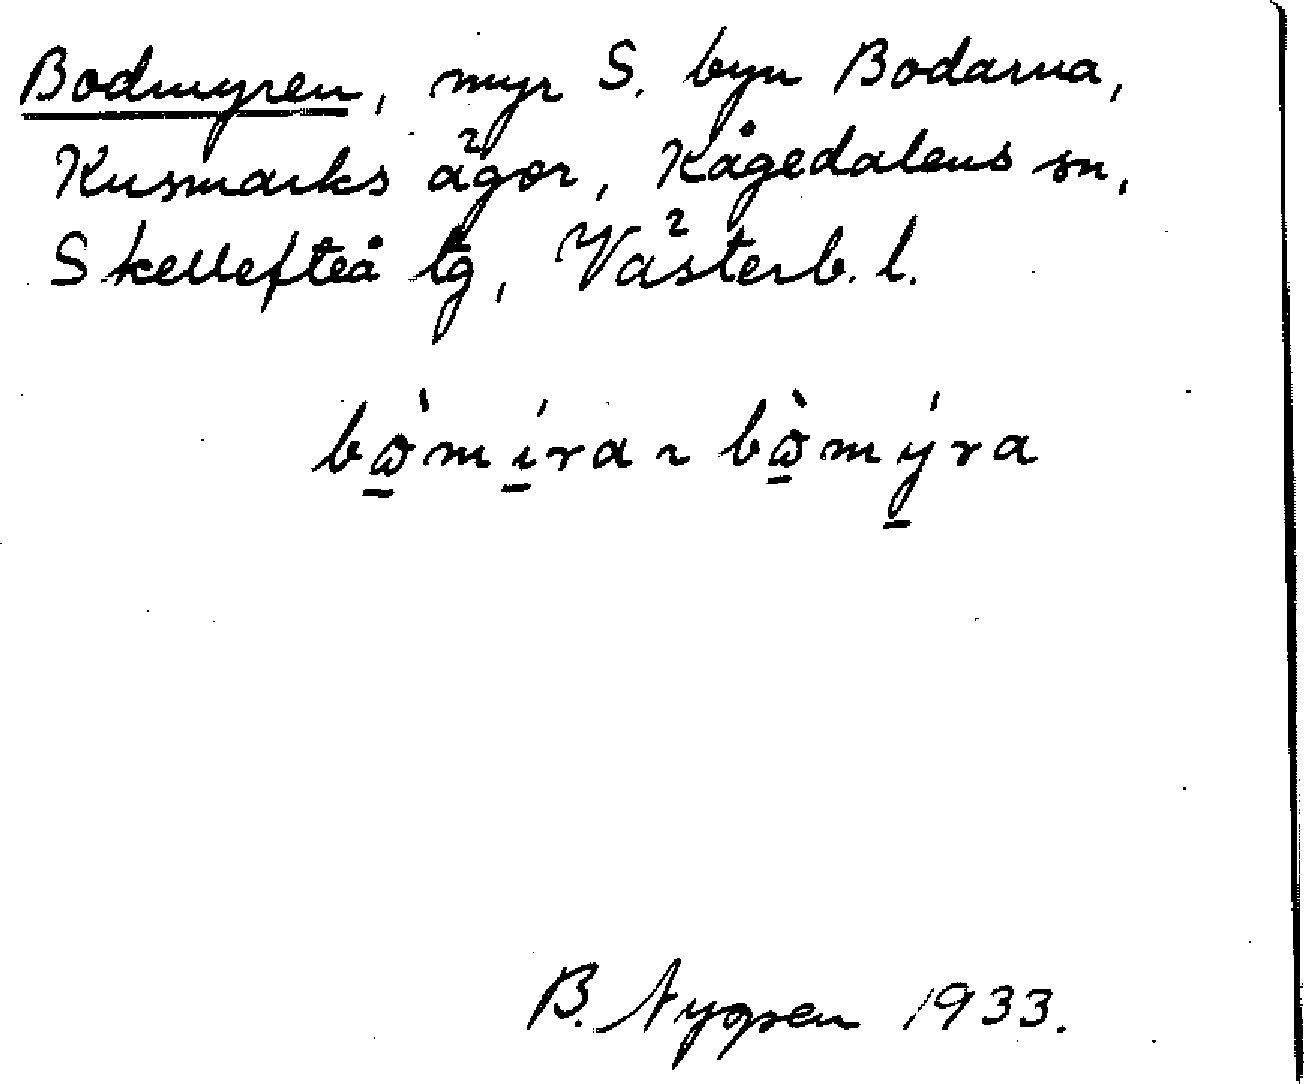 Bodmyren, myr S. byn Bodarna,
Kusmarks ägor, Kågedalens sn,
Skellefteå tg, Västerb. l.
bὼ̠mí̠ra ~ bὼ̠mý̠ra
B. Nygren 1933.